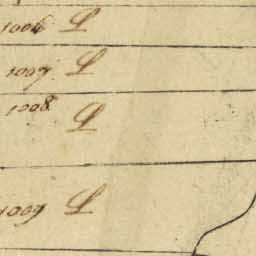 1006 L
1007 L
1008 L
1009 L